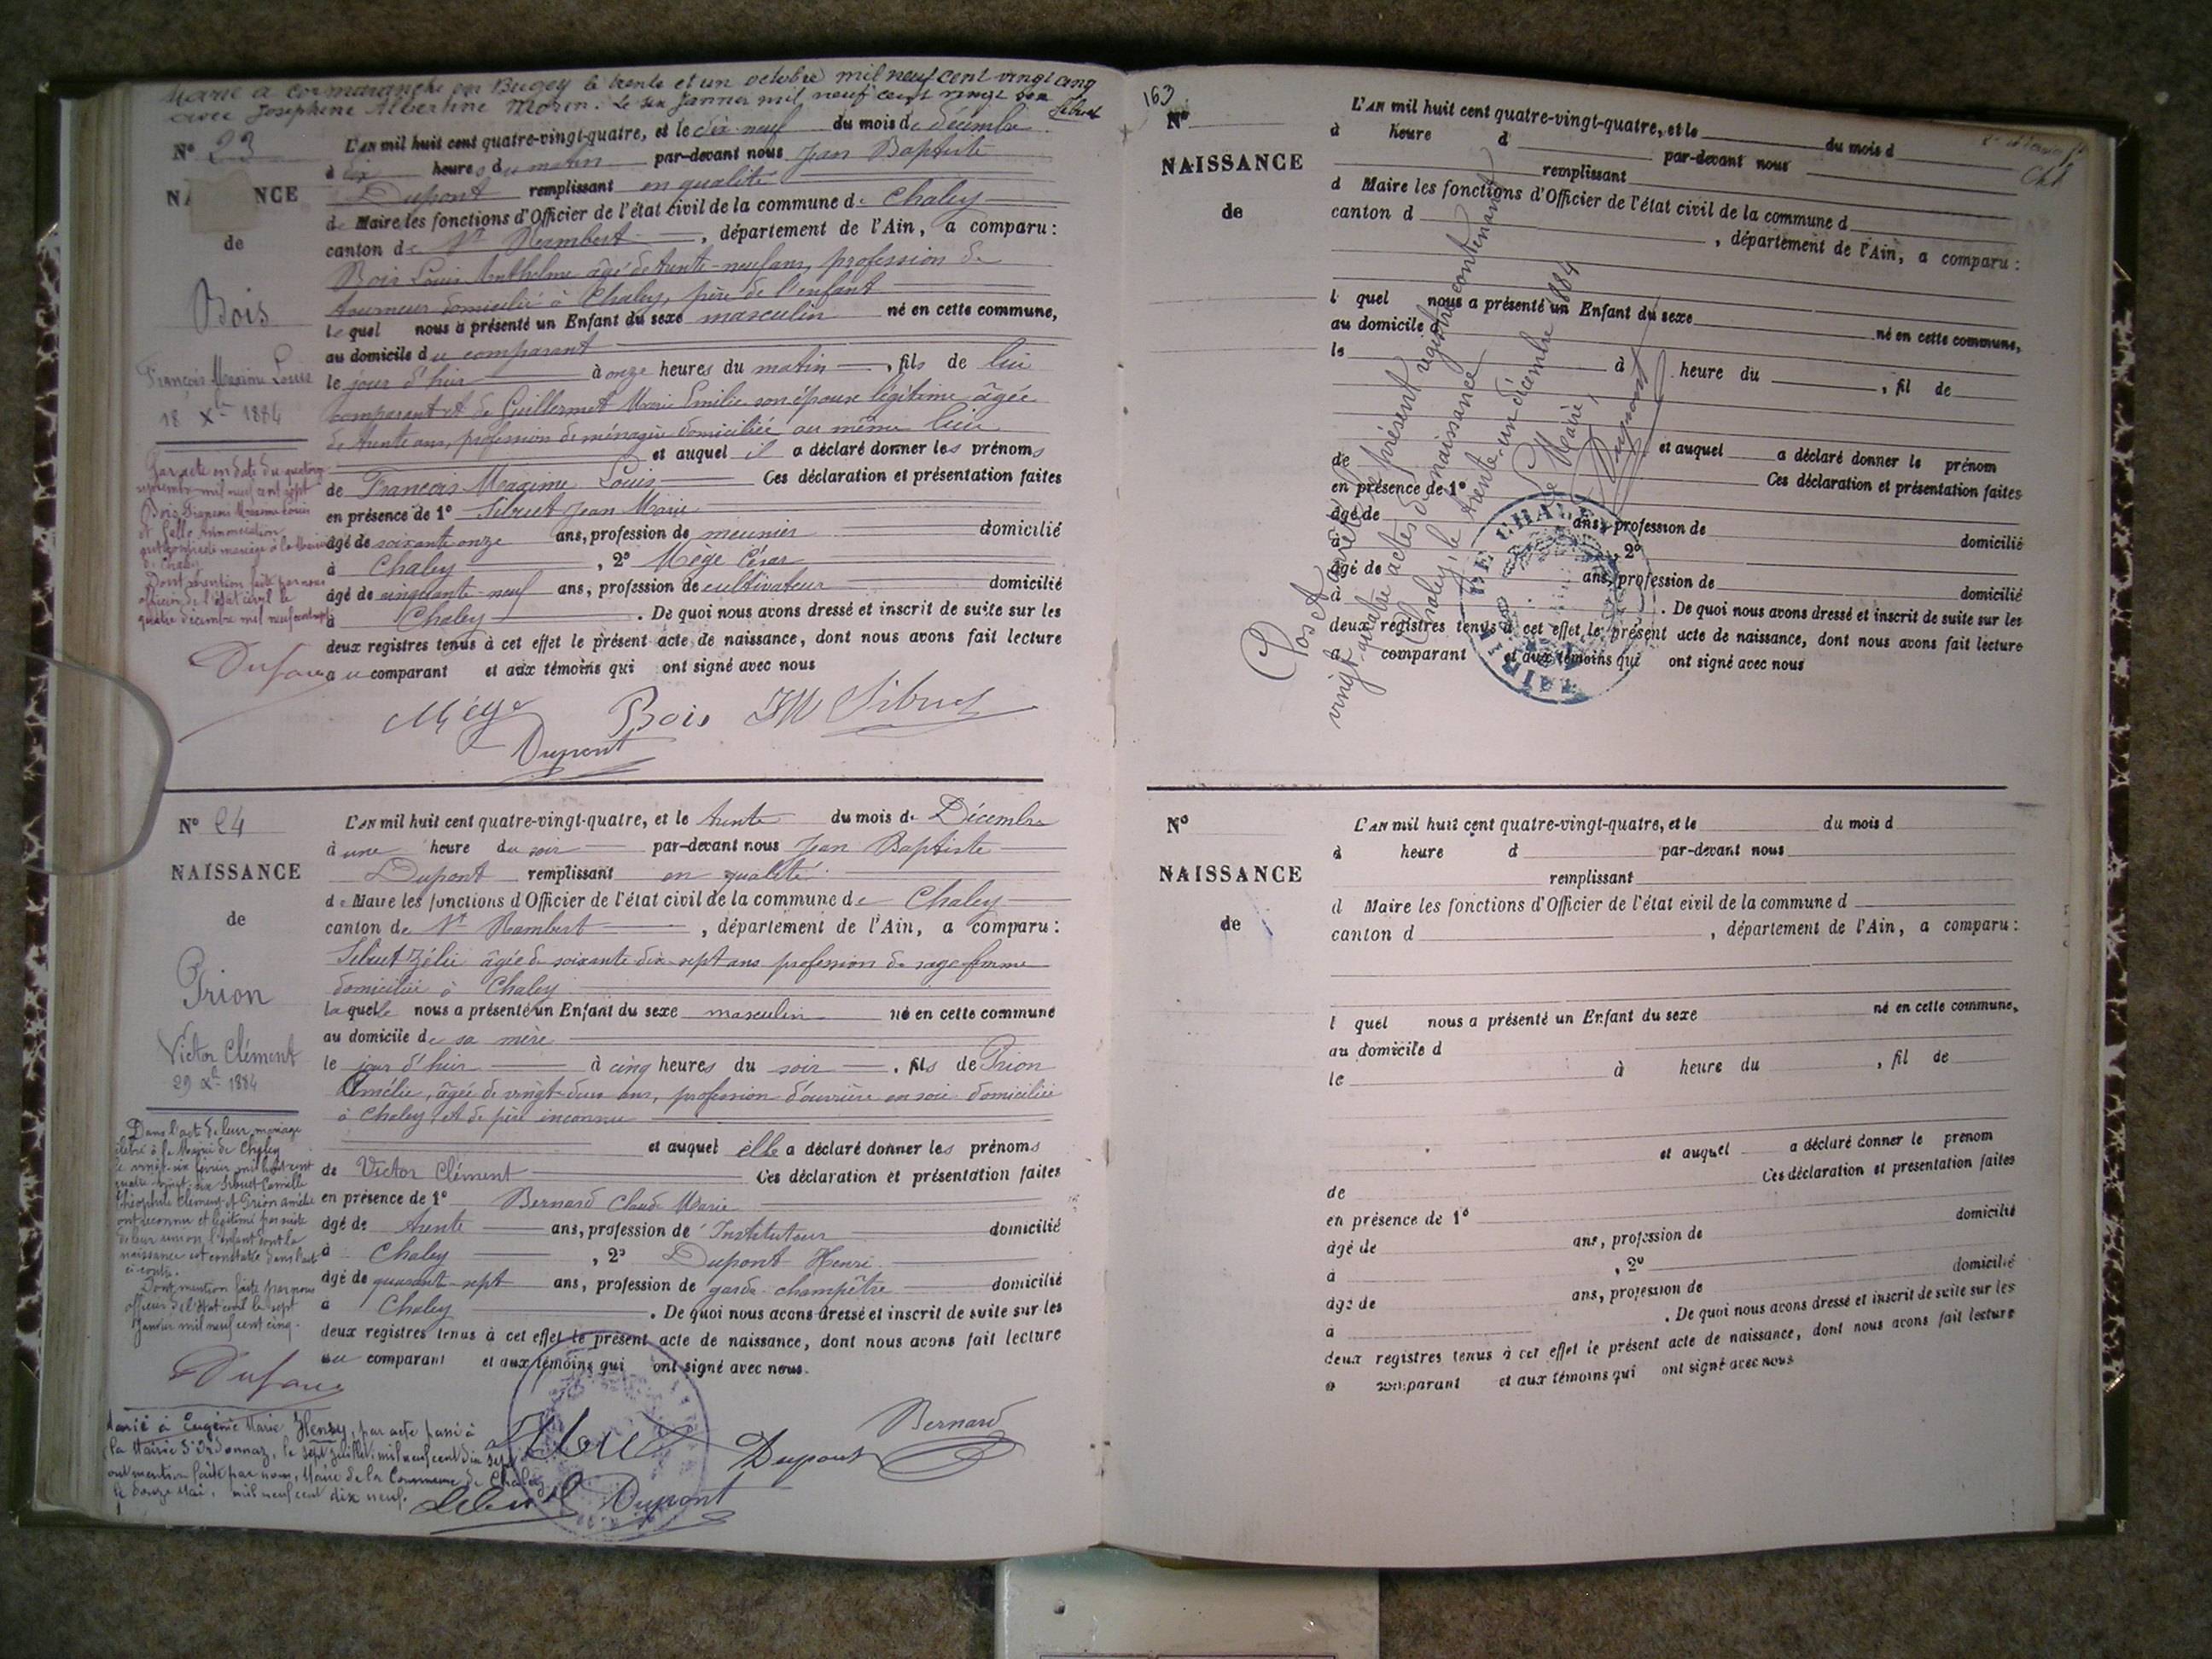 Marié à Cormaranche en Bugey le trente et un octobre mil neuf cent vingt cinq
avec Joséphine Albertine Morin. Le six Janvier mil neuf cent vingt six
Sibuet
N° 23
NA NCE
de
Bois
François Maxime Louis
18 Xbre 1884
L'AN mil huit cent quatre-vingt-quatre, et le dix-neuf du mois de décembre
à dix heures du matin par-devant nous Jean Baptiste
Dupont remplissant en qualité
de Maire les fonctions d'Officier de l'état civil de la commune de Chaley
canton de St Rambert, département de l'Ain, a comparu :
Bois Louis Anthelme âgé de trente-neuf ans, profession de
tourneur domicilié à Chaley, père de l'enfant
lequel nous a présenté un Enfant du sexe masculin né en cette commune,
au domicile du comparant
le jour d'hier à onze heures du matin, fils de lui
comparant et de Guillermet Marie Emilie son épouse légitime âgée
de trente ans, profession de ménagère domiciliée au même lieu
et auquel il a déclaré donner les prénoms
de François Maxime Louis Ces déclaration et présentation faites
en présence de 1° Sibuet Jean Marie
âgé de soixante onze ans, profession de meunier domicilié
à Chaley, 2° Mège César
âgé de cinquante-neuf ans, profession de cultivateur domicilié
à Chaley. De quoi nous avons dressé et inscrit de suite sur les
deux registres tenus à cet effet le présent acte de naissance, dont nous avons fait lecture
au comparant et aux témoins qui ont signé avec nous
Par acte en date du quatorze
septembre mil neuf cent sept
Bois François Maxime Louis
et Gallo Annonciation
ont contracté mariage à la Mairie
de Chaley
Dont mention faite par nous
officier de l'état civil le
quatre décembre mil neuf cent sept
Dufour
Mège Bois JM Sibuet
Dupont
N° 24
NAISSANCE
de
Prion
Victor Clément
29 Xbre 1884
L'AN mil huit cent quatre-vingt-quatre, et le trente du mois de Décembre
à une heure du soir par-devant nous Jean Baptiste
Dupont remplissant en qualité
de Maire les fonctions d'Officier de l'état civil de la commune de Chaley
canton de St Rambert, département de l'Ain, a comparu :
Sibuet Zélie âgée de soixante dix-sept ans profession de sage femme
domiciliée à Chaley
laquelle nous a présenté un Enfant du sexe masculin né en cette commune
au domicile de sa mère
le jour d'hier à cinq heures du soir, fils de Prion
Amélie, âgée de vingt-deux ans, profession d'ouvrière en soie domiciliée
à Chaley, et de père inconnu
et auquel elle a déclaré donner les prénoms
de Victor Clément Ces déclaration et présentation faites
en présence de 1° Bernard Claude Marie
âgé de trente ans, profession de Instituteur domicilié
à Chaley, 2° Dupont Henri
âgé de quarante-sept ans, profession de garde-champêtre domicilié
à Chaley. De quoi nous avons dressé et inscrit de suite sur les
deux registres tenus à cet effet le présent acte de naissance, dont nous avons fait lecture
au comparant et aux témoins qui ont signé avec nous.
Dans l'acte de leur mariage
célébré à la Mairie de Chaley
le vingt-six février mil huit cent
quatre-vingt-six Sibuet Camille
Théophile Clément et Prion Amélie
ont reconnu et légitimé par suite
de leur union l'enfant dont la
naissance est constatée dans l'acte
ci-contre.
Dont mention faite par nous
officier de l'état civil le sept
Janvier mil neuf cent cinq.
Dufour
Marié à Eugénie Marie Henry, par acte passé à
la Mairie d'Ordonnaz, le sept Juillet mil neuf cent dix sept
dont mention faite par nous, Maire de la Commune de Chaley
le douze Mai, mil neuf cent dix neuf.
Sibuet Dupont Bernard
Dupont
163
N°
NAISSANCE
de
L'AN mil huit cent quatre-vingt-quatre, et le du mois d
à heure d par-devant nous
remplissant
d Maire les fonctions d'Officier de l'état civil de la commune d
canton d , département de l'Ain, a comparu :
l quel nous a présenté un Enfant du sexe né en cette commune,
au domicile d
le à heure du , fil de
et auquel a déclaré donner le prénom
de Ces déclaration et présentation faites
en présence de 1°
âgé de ans, profession de domicilié
à , 2°
âgé de ans, profession de domicilié
à . De quoi nous avons dressé et inscrit de suite sur les
deux registres tenus à cet effet le présent acte de naissance, dont nous avons fait lecture
a comparant et aux témoins qui ont signé avec nous
Clos et arrêté le présent registre contenant
vingt-quatre actes de naissance
Chaley le trente-un décembre 1884
Le Maire,
Dupont
MAIRIE DE CHALEY
N°
NAISSANCE
de
L'AN mil huit cent quatre-vingt-quatre, et le du mois d
à heure d par-devant nous
remplissant
d Maire les fonctions d'Officier de l'état civil de la commune d
canton d , département de l'Ain, a comparu :
l quel nous a présenté un Enfant du sexe né en cette commune,
au domicile d
le à heure du , fil de
et auquel a déclaré donner le prénom
de Ces déclaration et présentation faites
en présence de 1°
âgé de ans, profession de domicilié
à , 2°
âgé de ans, profession de domicilié
à . De quoi nous avons dressé et inscrit de suite sur les
deux registres tenus à cet effet le présent acte de naissance, dont nous avons fait lecture
a comparant et aux témoins qui ont signé avec nous